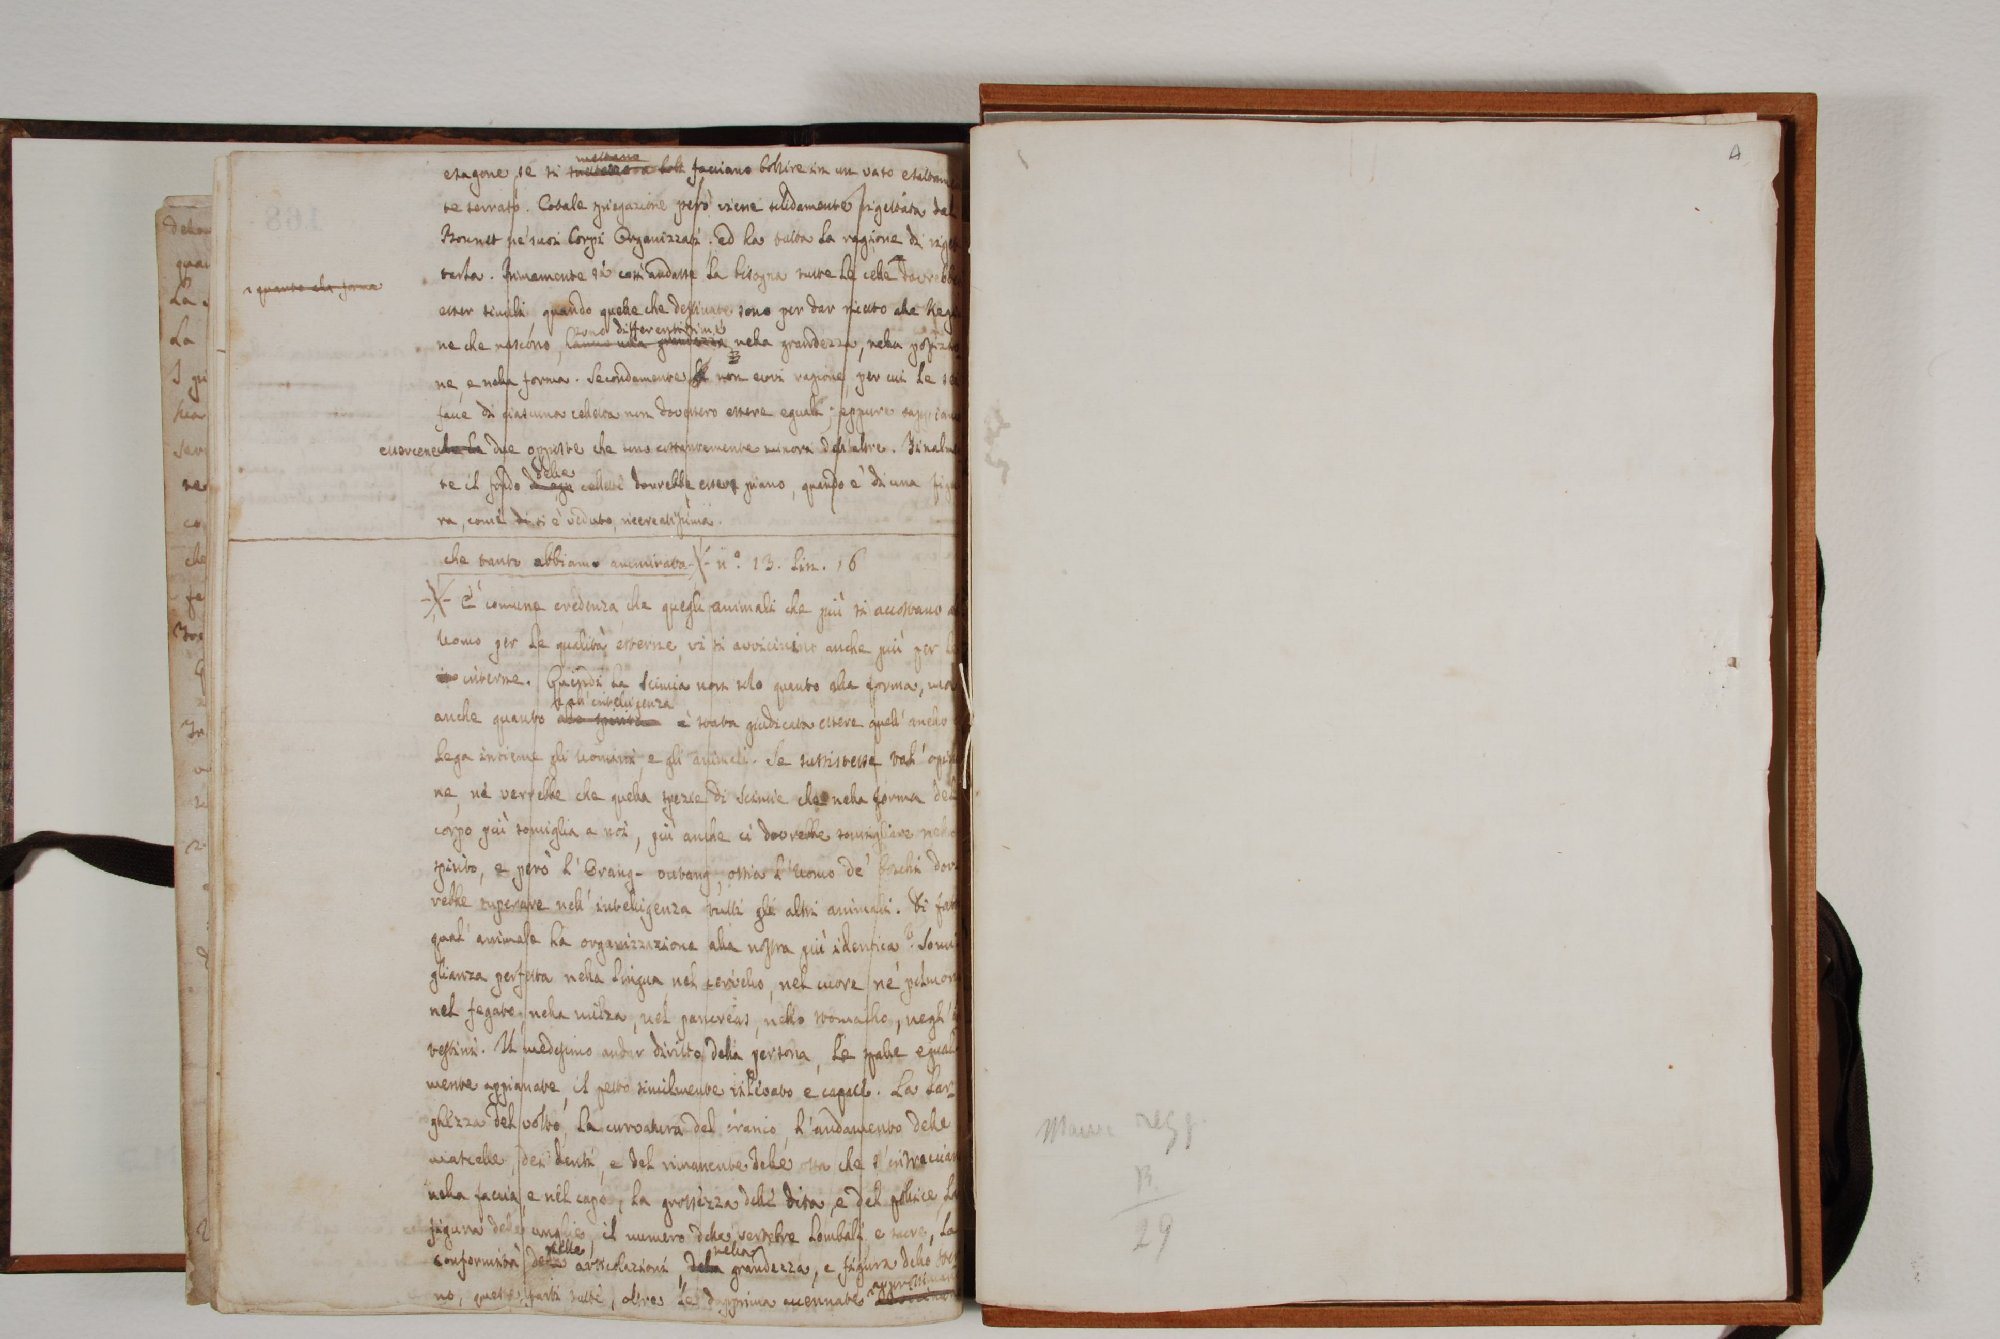 esagone, se si mettano facciano bollire in un vaso esattamen
te serrato. Cotale spiegazione però viene sodamente rigettata dal
Bonnet ne' suoi Corpi Organizzati. ed ha tutta la ragione di riget
tarla. Primamente se così andasse la bisogna tutte le celle dovrebbe
esser simili quando quelle che destinate sono per dar ricetto alle Regi
quanto alla forma
ne che nascono, sono differentissime nella grandezza, nella posizio
ne, e nella forma. Secondamente non evvi ragione, per cui le sei
facce di ciascuna celletta non dovessero essere eguali; eppure sappiamo
esservene due opposte che sono costantemente minori dell'altre. Finalmen
te il fondo delle cellette dovrebbe essere piano, quando è di una figu
ra, come si è veduto, ricercatissima.
che tanto abbiamo ammirata n.° 13. Lin. 16
È comune credenza, che quegli animali che più si accostano a
Uomo per le qualità esterne, vi si avvicinino anche più per le
interne. Quindi la Scimia non solo quanto alla forma, ma
anche quanto all'intelligenza è stata giudicata essere quell'anello
lega insieme gli uomini, e gli animali. Se sussistesse tal' opinio
ne, ne verrebbe che quella spezie di Scimie che nella forma del
corpo più somiglia a noi, più anche ci dovrebbe somigliare nello
spirito, e però l'Orang-outang, ossia l'Uomo de' boschi dov
rebbe superare nell'intelligenza tutti gli altri animali. Di fatt
qual' animale ha organizzazione alla nostra più identica? Somi
glianza perfetta nella lingua nel cervello, nel cuore, ne' polmoni
nel fegato, nella milza, nel pancreas, nello stomacho, negl'in
testini. Il medesimo andar diritto della persona, le spalle egual
mente appianate, il petto similmente rilevato e capace. La lar-
ghezza del volto, la curvatura del cranio, l'andamento delle
mascelle, dei denti, e del rimanente delle ossa che s'intrecciano
nella faccia, e nel capo, la grossezza delle dita, e del pollice, la
figura delle unghie, il numero delle vertebre lombali e sacre, la
conformità nelle articolazioni, nella grandezza, e figura dello ster
no, queste parti tutte, oltre le dapprima accennate
A
B
29